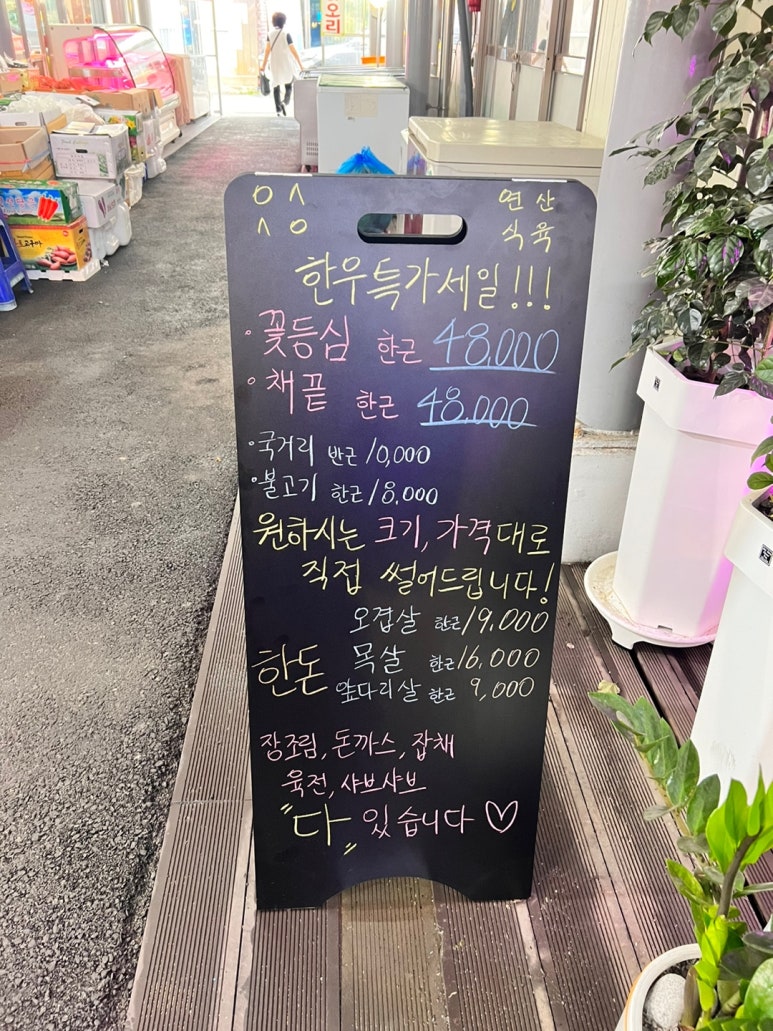 오리
고구마
ㅇ ㅅ
ㅅ ㅇ
연산
식육
한우특가세일!!!
·꽃등심 한근 48,000
·채끝 한근 48,000
·국거리 반근 10,000
·불고기 한근 18,000
원하시는 크기, 가격대로
직접 썰어드립니다!
오겹살 한근 19,000
한돈 목살 한근 16,000
앞다리살 한근 9,000
장조림, 돈까스, 잡채
육전, 샤브샤브
"다" 있습니다 ♡